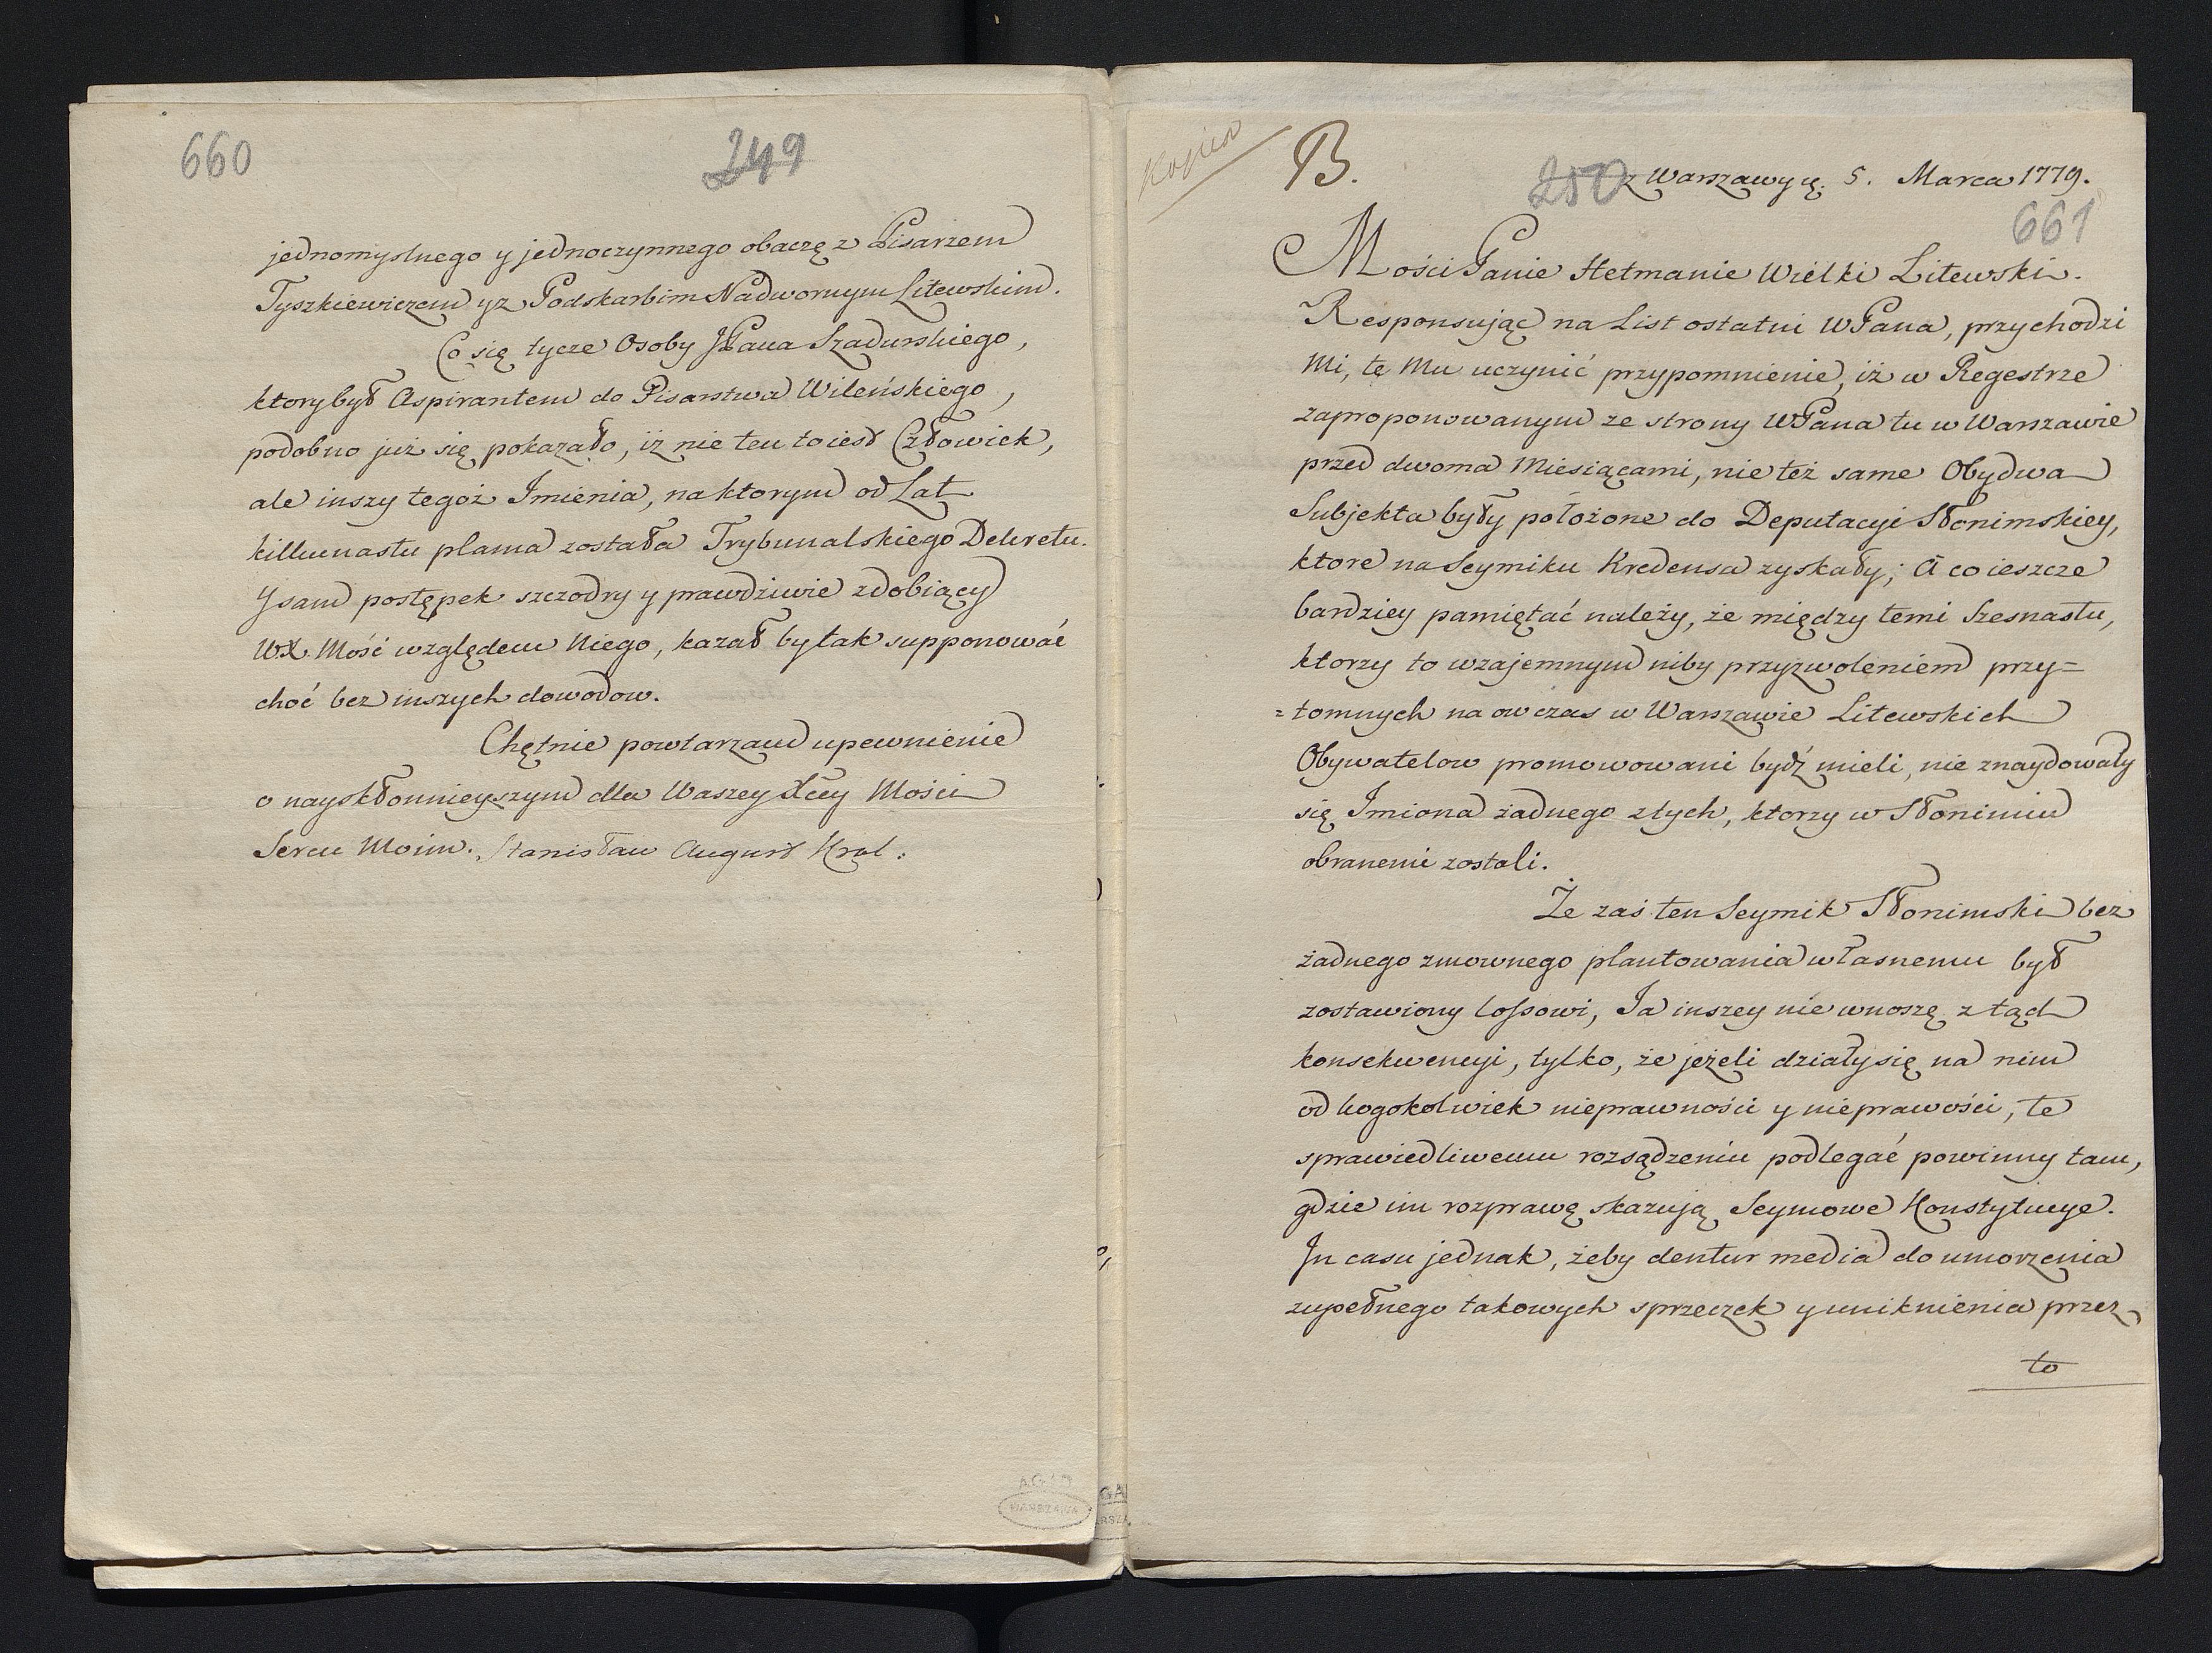 660
249
jednomyslnego y jednoczynnego obaczę z Pisarzem
Tyszkiewiczem y z Podskarbim Nadwornym Litewskim.
Co się tycze Osoby JPana Szadurskiego,
ktory był Aspirantem do Pisarstwa Wileńskiego,
podobno już się pokazało, iż nie ten to iest Człowiek,
ale inszy tegoż Imienia, na ktorym od Lat
kilkunastu plama została Trybunalskiego Dekretu.
Y sam postępek szczodry y prawdziwie zdobiący
WX. Mość względem Niego, kazał by tak supponować
choć bez inszych dowodow.
Chętnie powtarzam upewnienie
o nayskłonnieyszym dla Waszey Xcey Mości
Sercu Moim. Stanisław August Krol.
AGAD
WARSZAWA
Kopia
B.
250
z Warszawy d. 5. Marca 1779.
661
Mości Panie Hetmanie Wielki Litewski.
Responsując na List ostatni WPana, przychodzi
Mi, te Mu uczynić przypomnienie, iż w Regestrze
zaproponowanym ze strony WPana tu w Warszawie
przed dwoma Miesiącami, nie też same Obydwa
Subjekta były położone do Deputacyi Słonimskiey,
ktore na Seymiku Kredensa zyskały; A co ieszcze
bardziey pamiętać należy, że między temi Szesnastu,
ktorzy to wzajemnym niby przyzwoleniem przy=
=tomnych na ow czas w Warszawie Litewskich
Obywatelow promowowani bydź mieli, nie znaydowały
się Imiona żadnego z tych, ktorzy w Słonimiu
obranemi zostali.
Że zaś ten Seymik Słonimski bez
żadnego zmownego plantowania własnemu był
zostawiony lossowi, Ja inszey nie wnoszę z tąd
konsekwencyi, tylko, że jeżeli działy się na nim
od kogokolwiek nieprawności y nieprawości, te
sprawiedliwemu rozsądzeniu podlegać powinny tam,
gdzie im rozprawę skazują Seymowe Konstytucye.
In casu jednak, żeby dentur media do umorzenia
zupełnego takowych sprzeczek y uniknienia przez
to